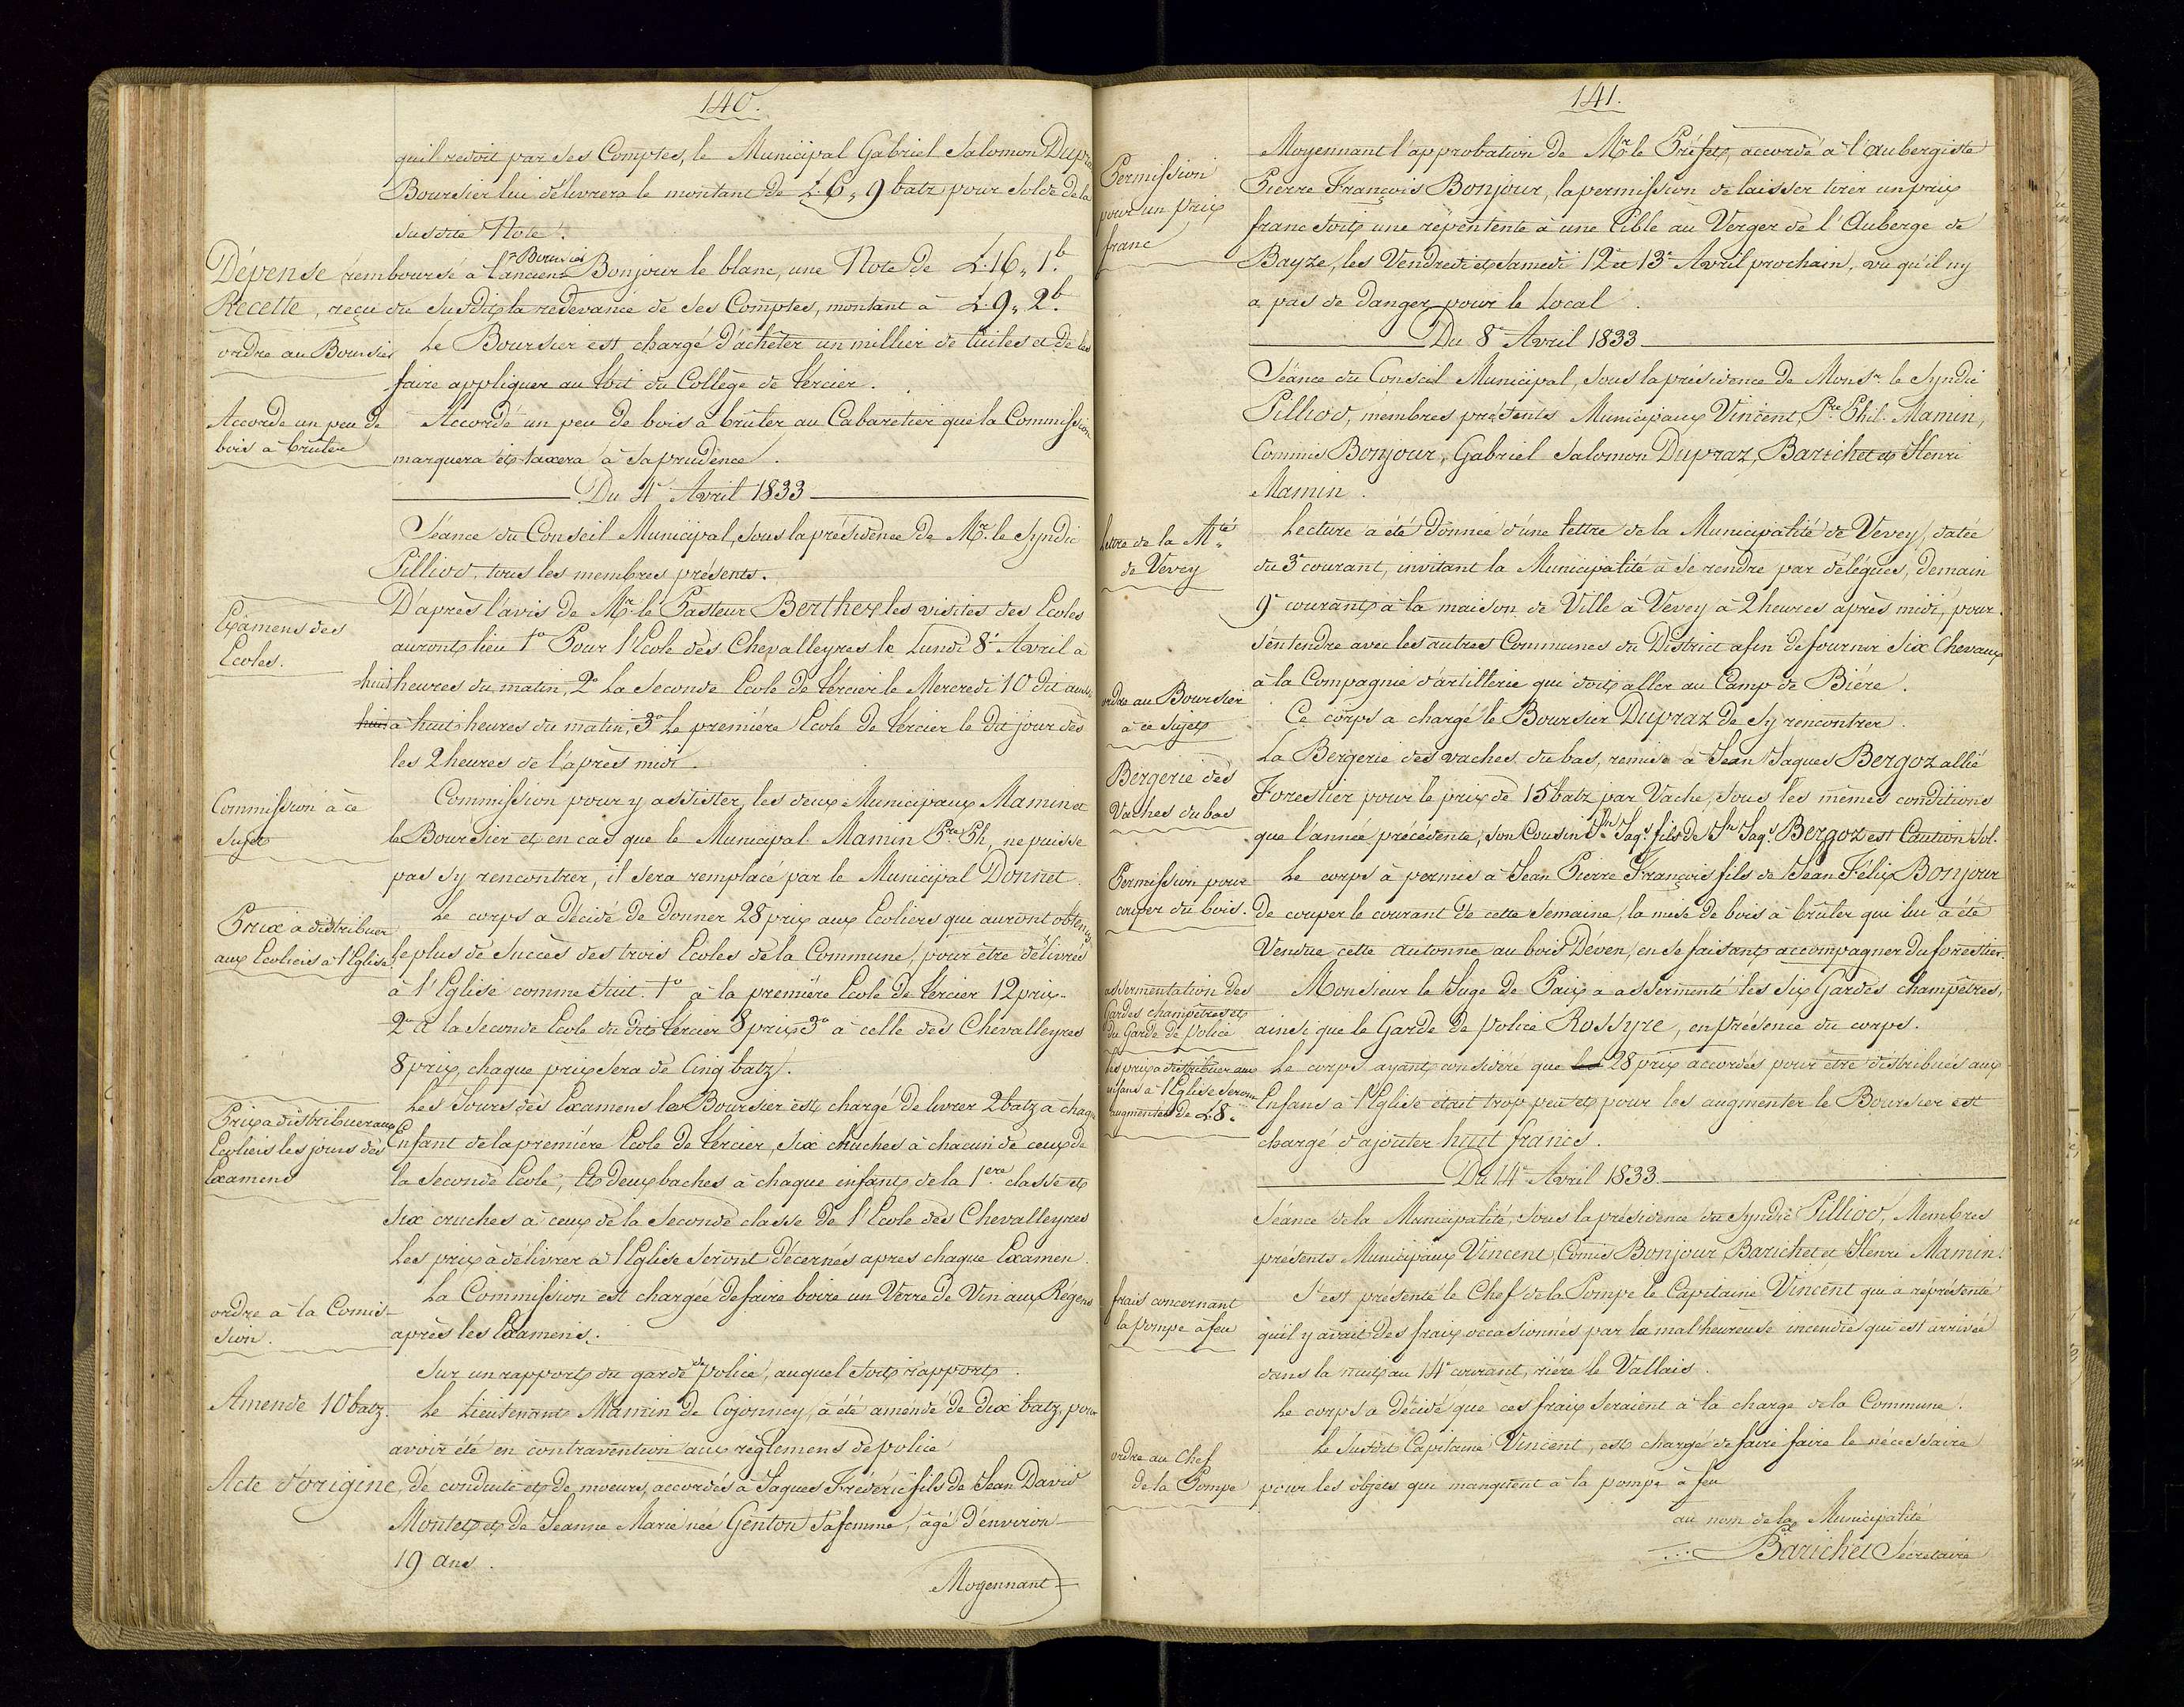 140.
qu'il redoit par ses Comptes, le Municipal Gabriel Salomon Dupraz
Boursier lui délivrera le montant de L. 6, 9 batz pour solde de la
susdite Note.
Dépense, remboursé à l'ancien Boursier Bonjour le blanc, une Note de L. 16, 1.b
Recette, reçu du susdit la redevance de ses Comptes, montant à L. 9, 2.b
ordre au Boursier
Le Boursier est chargé d'acheter un millier de tuiles et de les
faire appliquer au toit du Collège de Tercier.
Accorde un peu de
bois à brûler
Accordé un peu de bois à brûler au Cabaretier que la Commission
marquera et taxera à sa prudence.
Du 4e Avril 1833
Séance du Conseil Municipal, sous la présidence de Mr. le Syndic
Pilliod, tous les membres présents.
Examens des
Ecoles.
D'après l'avis de Mr. le Pasteur Berthex les visites des Ecoles
auront lieu 1o Pour l'Ecole des Chevalleyres le Lundi 8e Avril à
huit heures du matin, 2o La Seconde Ecole de Tercier le Mercredi 10 dit aussi
huit à huit heures du matin, 3o La première Ecole de Tercier le dit jour dès
les 2 heures de l'après midi.
Commission à ce
sujet
Commission pour y assister, les deux Municipaux Mamin et
le Boursier et en cas que le Municipal Mamin Pre. Ph, ne puisse
pas s'y rencontrer, il sera remplacé par le Municipal Donnet.
Prix à distribuer
aux Ecoliers à l'Eglise
Le corps a décidé de donner 28 prix aux Ecoliers qui auront obtenus
le plus de succès des trois Ecoles de la Commune, pour être délivrés
à l'Eglise comme suit. 1o à la première Ecole de Tercier 12 prix.
2o à la Seconde Ecole du dit Tercier 8 prix 3o à celle des Chevalleyres
8 prix, chaque prix sera de Cinq batz.
Prix à distribuer aux
Ecoliers les jours des
Examens
Les Jours des Examens le Boursier est chargé de livrer 2 batz à chaque
Enfant de la première Ecole de Tercier, Six cruches à chacun de ceux de
la Seconde Ecole, Et deux baches à chaque enfant de la 1ere classe et
Six cruches à ceux de la Seconde classe de l'Ecole des Chevalleyres
Les prix à délivrer à l'Eglise seront décernés apres chaque Examen.
ordre à la Comis-
sion.
La Commission est chargée de faire boire un Verre de Vin aux Régens
après les Examens.
Sur un rapport du garde de police, auquel soit rapport.
Amende 10 batz.
Le Lieutenant Mamin de Cojonney, a été amendé de dix batz, pour
avoir été en contravention aux règlemens de police
Acte d'origine, de conduite et de moeurs, accordés à Jaques Fréderic fils de Jean David
Montet et de Jeanne Marie née Genton sa femme, âgé d'environ
19 ans.
Moyennant
141.
Permission
pour un prix
franc
Moyennant l'approbation de Mr. le Préfet, accordé à l'aubergiste
Pierre François Bonjour, la permission de laisser tirer un prix
franc soit une répentente à une Cible au Verger de l'Auberge de
Bayze, les Vendredi et Samedi 12e et 13e Avril prochain, vu qu'il n'y
a pas de danger pour le Local.
Du 8e Avril 1833
Séance du Conseil Municipal, sous la présidence de Monsr. le Syndic
Pilliod, membres présents Municipaux Vincent, Pre. Phil. Mamin,
Commis Bonjour, Gabriel Salomon Dupraz, Barichet et Henri
Mamin.
lettre de la Mté.
de Vevey
Lecture a été donnée d'une lettre de la Municipalité de Vevey, datée
du 3e courant, invitant la Municipalité à se rendre par délégués, demain
9e courant à la maison de Ville à Vevey à 2 heures après midi, pour
s'entendre avec les autres Communes du District afin de fournir Six Chevaux
à la Compagnie d'artillerie qui doit aller au Camp de Bière.
ordre au Boursier
à ce sujet
Ce corps a chargé le Boursier Dupraz de s'y rencontrer.
Bergerie des
Vaches du bas
La Bergerie des vaches du bas, remise à Jean Jaques Bergoz allié
Forestier pour le prix de 15 batz par Vache, sous les mêmes conditions
que l'année précédente, son Cousin Jn. Jaqs. fils de Jn. Jaqs. Bergoz est Caution sol.
Permission pour
couper du bois.
Le corps à permis à Jean Pierre François fils de Jean Félix Bonjour
De couper le courant de cette semaine, la mise de bois à brûler qui lui a été
Vendue cette automne au bois Déven, en se faisant accompagner du forestier.
assermentation des
Gardes champêtres et
du Garde de police
Monsieur le Juge de Paix a assermenté les Six Gardes champêtres,
ainsi que le Garde de police Rossyre, en présence du corps.
les prix à distribuer aux
enfans à l'Eglise seront
augmentés de L8.
Le corps ayant considéré que les 28 prix accordés pour être distribués aux
Enfans à l'Eglise était trop peu et pour les augmenter le Boursier est
chargé d'ajouter huit francs.
Du 14e Avril 1833
Séance de la Municipalité, sous la présidence du Syndic Pilliod, Membres
présents Municipaux Vincent, Comis Bonjour, Barichet et Henri Mamin.
frais concernant
la pompe à feu
S'est présenté le Chef de la Pompe le Capitaine Vincent qui a réprésenté
qu'il y avait des fraix occasionnés par la mal'heureuse incendie qui est arrivée
dans la nuit au 14e courant, rière le Vallais.
Le corps a décidé que ces fraix seraient à la charge de la Commune.
ordre au Chef
de la Pompe
Le susdit Capitaine Vincent, est chargé de faire faire le nécessaire
pour les objets qui manquent à la pompe à feu
au nom de la Municipalité
Barichet Sécretaire